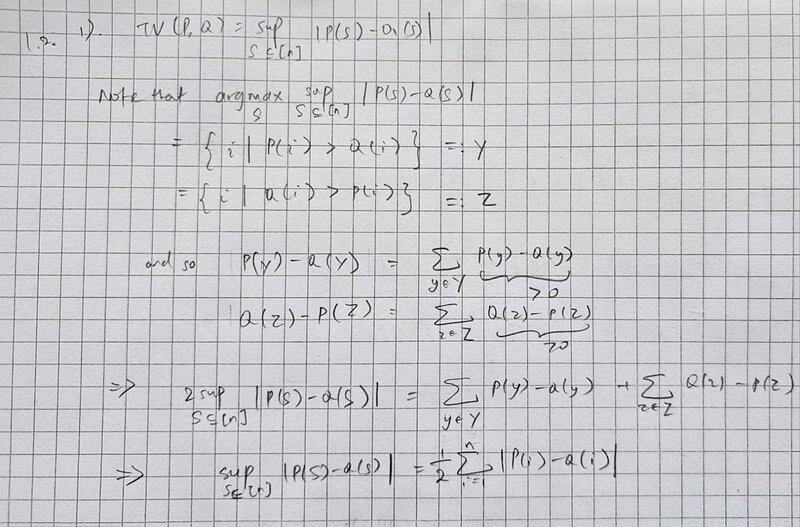 1.2. 1). TV(P,Q) = sup_{S⊆[n]} |P(S)-Q(S)|
Note that argmax_S sup_{S⊆[n]} |P(S)-Q(S)|
= { i | P(i) > Q(i) } =: Y
= { i | Q(i) > P(i) } =: Z
and so P(Y)-Q(Y) = ∑_{y∈Y} P(y)-Q(y)
>0
Q(Z)-P(Z) = ∑_{z∈Z} Q(z)-P(z)
>0
=> 2 sup_{S⊆[n]} |P(S)-Q(S)| = ∑_{y∈Y} P(y)-Q(y) + ∑_{z∈Z} Q(z)-P(z)
=> sup_{S⊆[n]} |P(S)-Q(S)| = 1/2 ∑_{i=1}^{n} |P(i)-Q(i)|